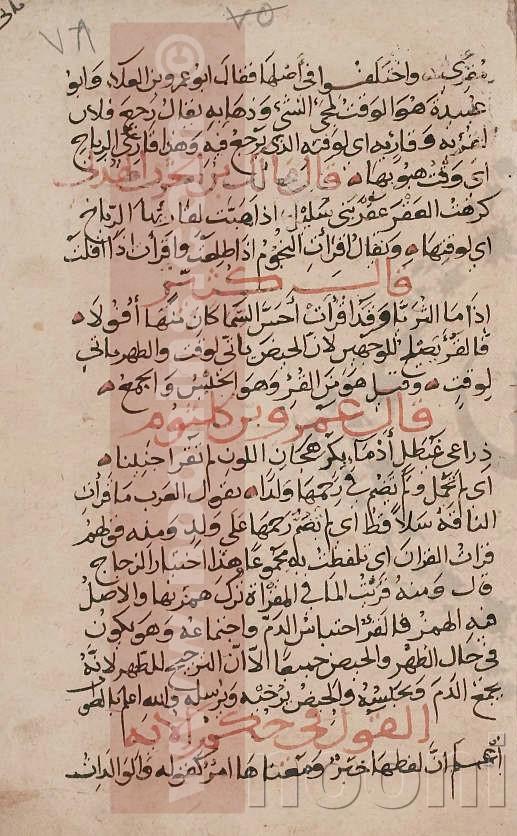 ٧٨ ٧٥
واختلفوا في أصلها فقال ابو عمرو بن العلاء وابو
عبيدة هو الوقت لمجي الشي وذهابه يقال رجع فلان
لقرئه وقارئه اي لوقته الذي يرجع فيه وهذا قارئ الرياح
اي وقت هبوبها قال مالك بن الحرث الهذلي
كرهت العقر عقر بني شليل اذا هبت لقارئها الرياح
اي لوقتها ويقال اقرأت النجوم اذا طلعت واقرأت اذا افلت
قال كثير
اذا ما الثريا وقد اقرأت احس السما كان منها أفولا
فالقرؤ يصلح للوجهين لان الحيض ياتي لوقت والطهر ياتي
لوقت وقيل هو من القرء وهو الحبس والجمع
قال عمرو بن كلثوم
ذراعي عيطل أدماء بكر هجان اللون لم تقرأ جنينا
اي لم تحمل ولم تضم في رحمها ولدا يقول العرب ما قرأت
الناقة سلاً قط اي لم تضم رحمها على ولد ومنه قولهم
قرأت القرآن اي لفظت به مجموعا هذا اختيار الزجاج
قال ومنه قريت الماء في المقراة ترك همزها والاصل
فيه الهمز فالقرؤ احتباس الدم واجتماعه وهو يكون
في حال الطهر والحيض جميعا الا ان الترجيح للطهر لانه
يجمع الدم ويحبسه والحيض يرخيه ويرسله والله اعلم
القول في حكم الآية
اعلم انّ لفظها خبر ومعناها امر كقوله والوالدات
noon